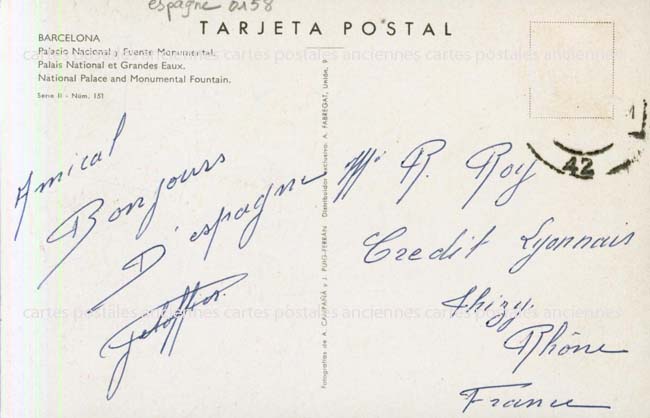 espagne 0158
TARJETA POSTAL
BARCELONA
Palacio Nacional y Fuente Monumental.
Palais National et Grandes Eaux.
National Palace and Monumental Fountain.
Serie II - Núm. 151
cartes postales anciennes cartes postales anciennes cartes postales anciennes
Amical
Bonjours
D'espagne
Fotografías de A. CAMPAÑÁ y J. PUIG-FERRÁN Distribuidor exclusivo: A. FABREGAT, Unión, 9
42
Mr R. Roy
Credit Lyonnais
Thizy
Rhône
France
cartes postales anciennes cartes postales anciennes cartes postales anciennes